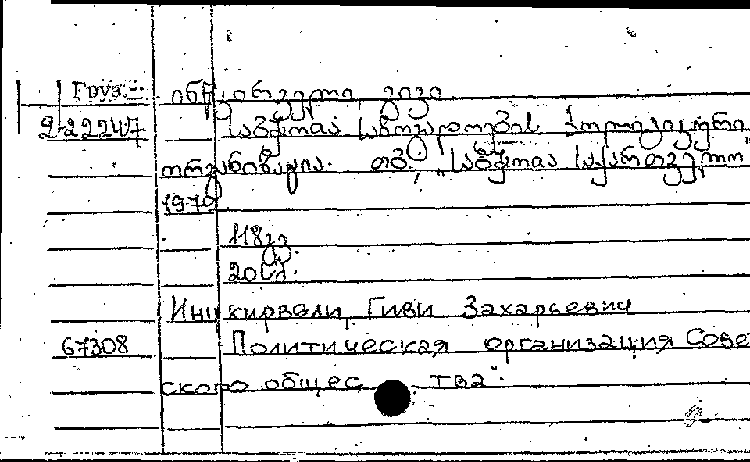 Груз.- ინწკირველი, გივი
2-22247 საბჭოთა საზოგადოების პოლიტიკური
ორგანიზაცია. თბ., „საბჭოთა საქართველო"
1979
118 გვ.
20 სმ.
Инцкирвели, Гиви Захарьевич
67308 Политическая организация Сове
ского общества".